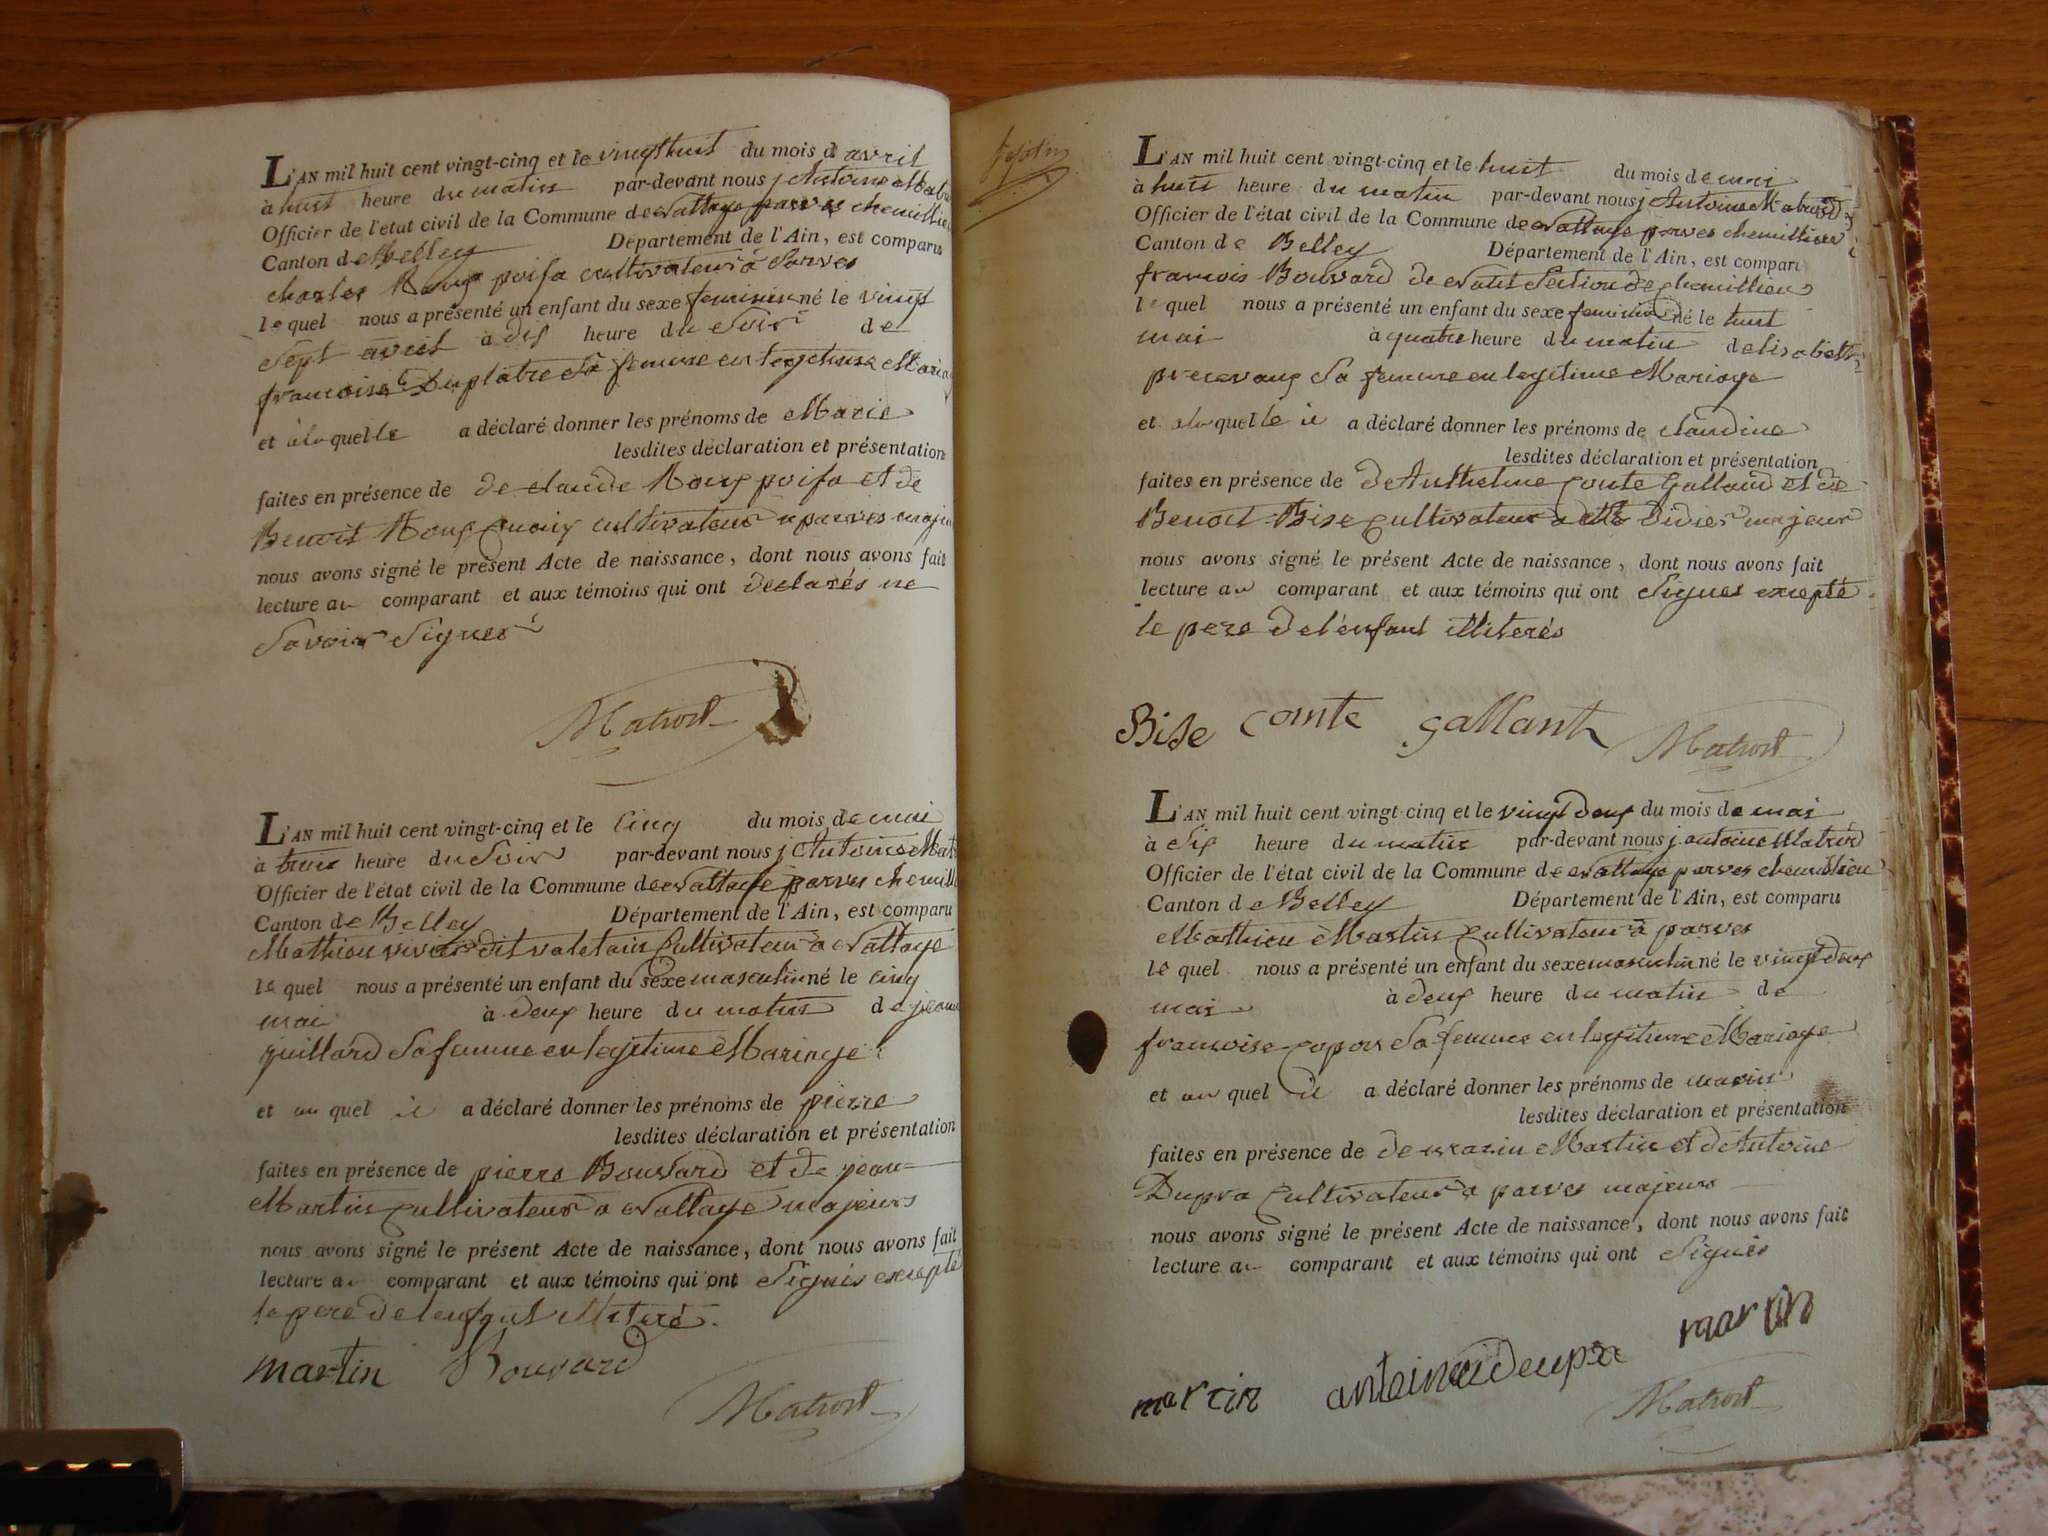 L'AN mil huit cent vingt-cinq et le vingt huit du mois d avril
à huit heure du matin par-devant nous j Antoine
Officier de l'état civil de la Commune de Nattage parves
Canton de Belley Département de l'Ain, est comparu
charles Roux poifa cultivateur à Parves
le quel nous a présenté un enfant du sexe feminin né le vingt
sept avril à dix heure du Soir de
francoise Duplatre Sa femme en legitime Maria
et à la quelle a déclaré donner les prénoms de Marie
lesdites déclaration et présentation
faites en présence de de claude Roux poifa et de
Benoit Roux cultivateur a parves
nous avons signé le présent Acte de naissance, dont nous avons fait
lecture au comparant et aux témoins qui ont declarés ne
Savoir Signer
Matrod
L'AN mil huit cent vingt-cinq et le Cinq du mois de mai
à trois heure du Soir par-devant nous j Antoine Mat
Officier de l'état civil de la Commune de Nattage parves chemill
Canton de Belley Département de l'Ain, est comparu
Mathieu dit valetain Cultivateur à Nattage
le quel nous a présenté un enfant du sexe masculin né le cinq
mai à deux heure du matin de jeann
guillard Sa femme en legitime Mariage
et au quel il a déclaré donner les prénoms de pierre
lesdites déclaration et présentation
faites en présence de pierre Bouvard et de jean
Martin Cultivateur a Nattage majeurs
nous avons signé le présent Acte de naissance, dont nous avons fait
lecture au comparant et aux témoins qui ont Signés excepté
le pere de lenfant illiteré.
martin Bouvard
Matrod
L'AN mil huit cent vingt-cinq et le huit du mois de mai
à huit heure du matin par-devant nous j Antoine Matrod
Officier de l'état civil de la Commune de Nattage parves chemillieu
Canton de Belley Département de l'Ain, est comparu
francois Bouvard de Section de chemillieu
le quel nous a présenté un enfant du sexe feminin né le huit
mai à quatre heure du matin delisabeth
Sa femme en legitime Mariage
et a la quelle il a déclaré donner les prénoms de claudine
lesdites déclaration et présentation
faites en présence de d'Anthelme Comte Galland et de
Benoit Bise Cultivateur Didier majeur
nous avons signé le présent Acte de naissance, dont nous avons fait
lecture au comparant et aux témoins qui ont Signes excepté
le pere de l'enfant illiterés
Bise comte gallant Matrod
L'AN mil huit cent vingt-cinq et le vingt deux du mois de mai
à Six heure du matin par-devant nous j antoine Matrod
Officier de l'état civil de la Commune de Nattage parves chemillieu
Canton de Belley Département de l'Ain, est comparu
Mathieu Martin Cultivateur à parves
le quel nous a présenté un enfant du sexe masculin né le vingt deux
mai à deux heure du matin de
francoise Sa femme en legitime Mariage
et au quel il a déclaré donner les prénoms de marin
lesdites déclaration et présentation
faites en présence de de marin Martin et d'Antoine
Dupra Cultivateur a parves majeurs
nous avons signé le présent Acte de naissance, dont nous avons fait
lecture au comparant et aux témoins qui ont Signés
martin
martin
Matrod